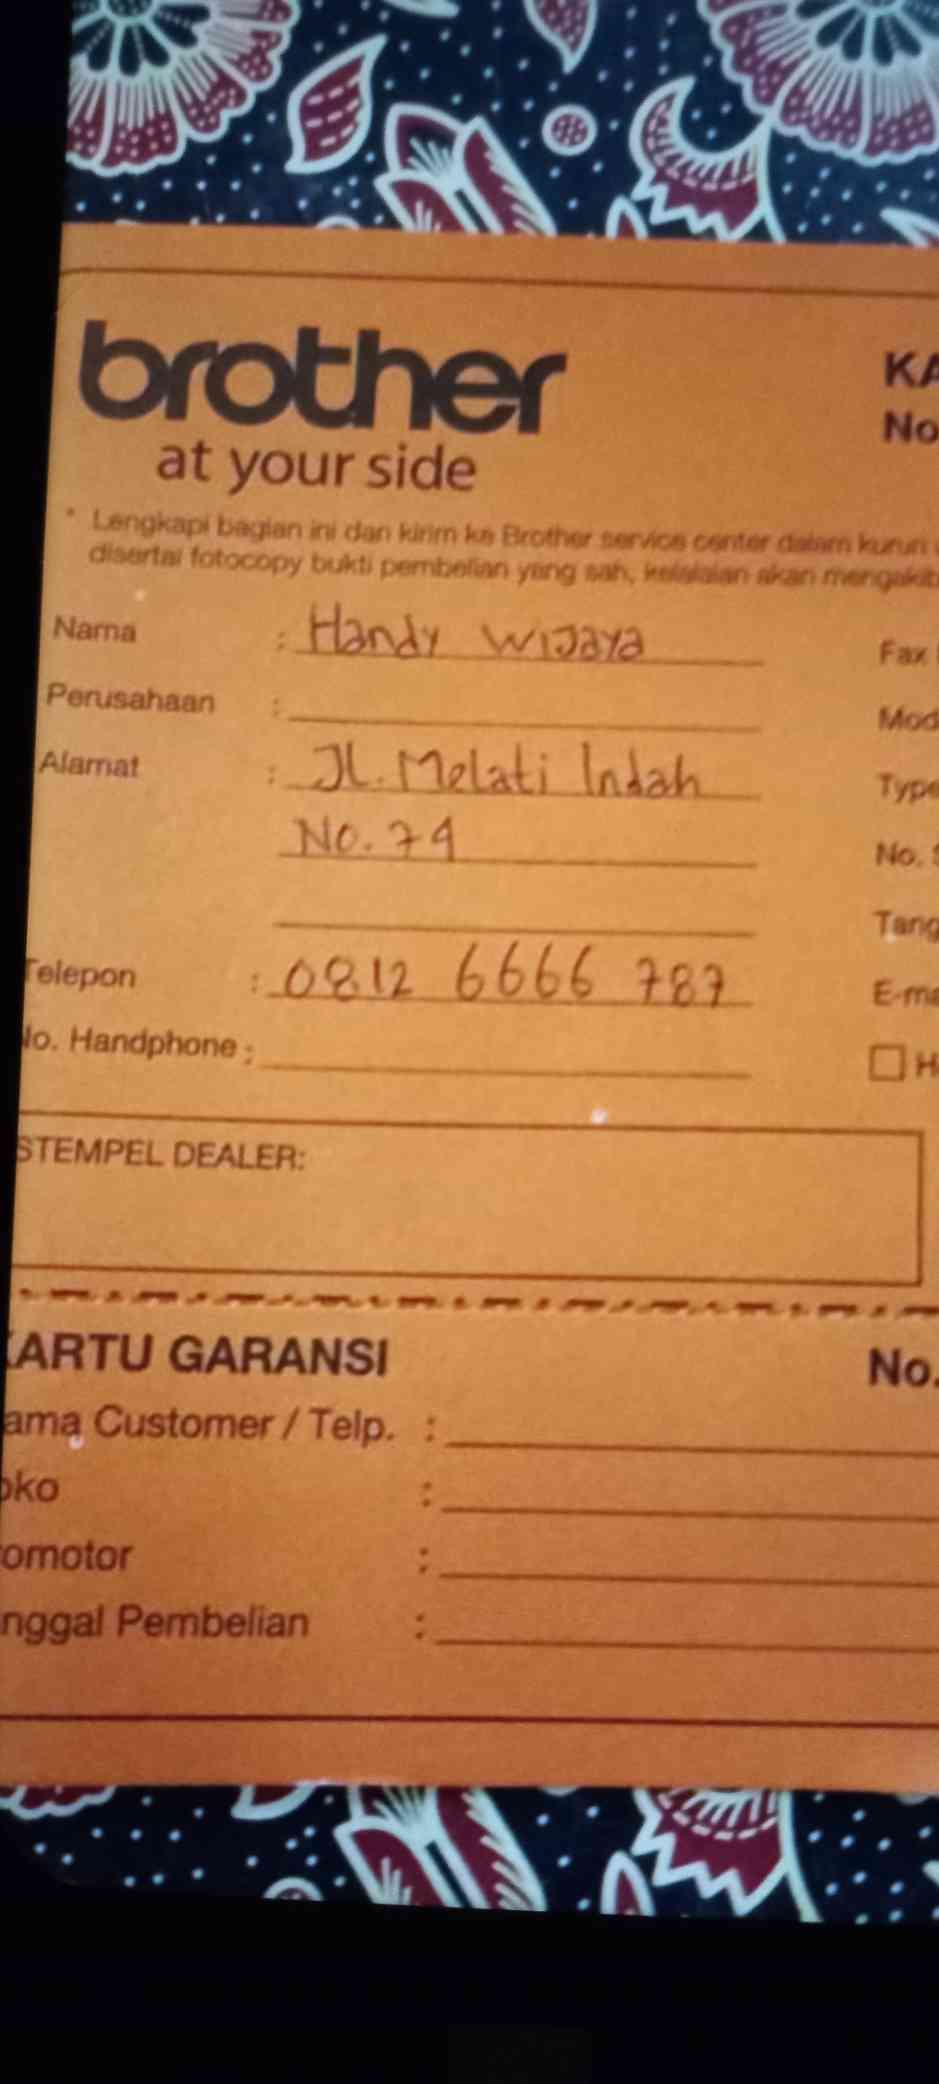 brother
at your side
KA
No
* Lengkapi bagian ini dan kirim ke Brother service center dalam kurun
disertai fotocopy bukti pembelian yang sah, kelalaian akan mengakib
Nama : Handy Wijaya
Fax
Perusahaan :
Mod
Alamat : Jl. Melati Indah
Type
No. 79
No. S
Tang
Telepon : 0812 6666 787
E-ma
No. Handphone :
H
STEMPEL DEALER:
KARTU GARANSI
No.
ama Customer / Telp. :
oko :
omotor :
nggal Pembelian :